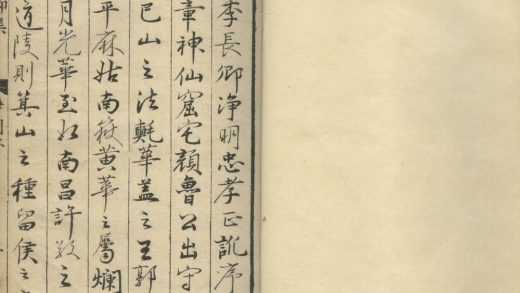 李長卿淨明忠孝正訛序
章神仙窟宅顏魯公出守
巴山之法氈華蓋之王郭
平麻姑南黃華之屬爛
月光華至如南昌許敬之
道陵則箕山之種留侯之